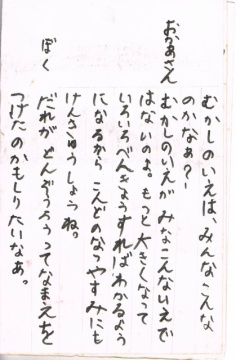 むかしのいえは、みんなこんな
のかなぁ？
おかあさん
むかしのいえがみなこんないえで
はないのよ。もっと大きくなって
いろいろべんきょうすればわかるよう
になるからこんどのなつやすみにも
けんきゅうしようね。
ぼく
だれがどんぞうろうってなまえを
つけたのかもしりたいなあ。